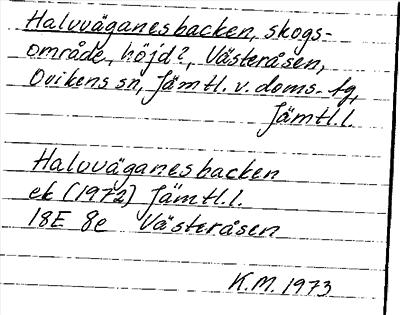 Halvvåganesbacken, skogs-
område, höjd?, Västeråsen,
Ovikens sn, Jämtl. v. doms. fg,
Jämtl.l.
Halvvåganesbacken
ek (1972) Jämtl.l.
18E 8e Västeråsen
K.M. 1973